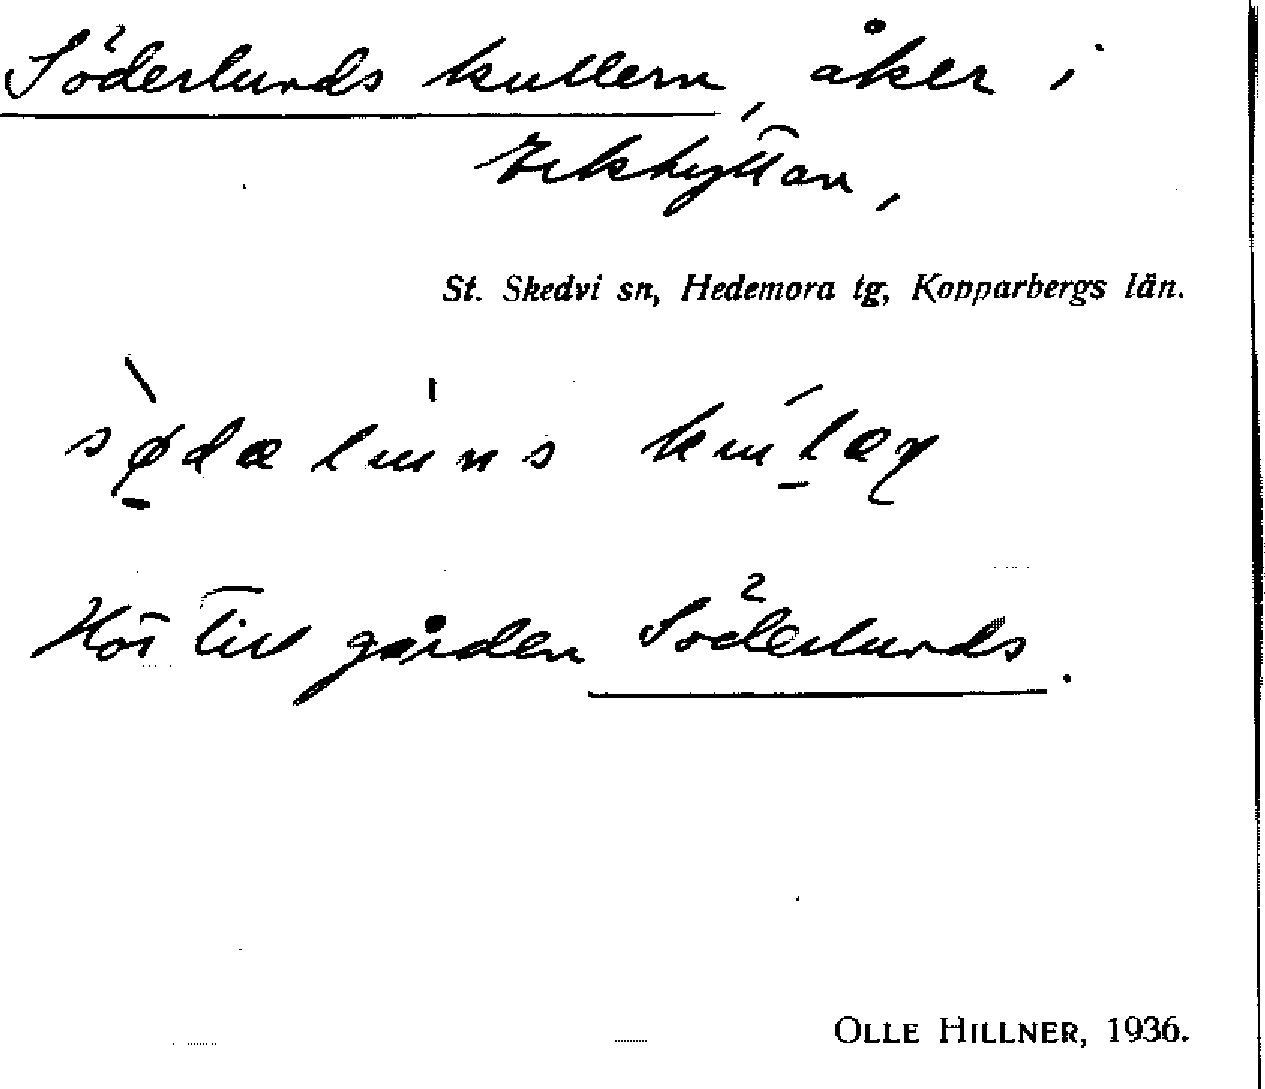 Söderlunds kullern, åker i
Erkhyttan,
St. Skedvi sn, Hedemora tg, Kopparbergs län.
Hör till gården Söderlunds.
OLLE HILLNER, 1936.